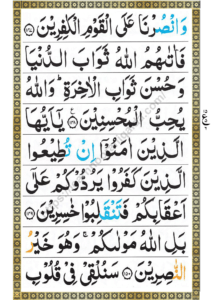 وَانْصُرْنَا عَلَى الْقَوْمِ الْكٰفِرِيْنَ
فَاٰتٰىهُمُ اللّٰهُ ثَوَابَ الدُّنْيَا
وَحُسْنَ ثَوَابِ الْاٰخِرَةِ ؕ وَاللّٰهُ
يُحِبُّ الْمُحْسِنِيْنَ يٰۤاَيُّهَا
الَّذِيْنَ اٰمَنُوْۤا اِنْ تُطِيْعُوا
الَّذِيْنَ كَفَرُوْا يَرُدُّوْكُمْ عَلٰۤى
اَعْقَابِكُمْ فَتَنْقَلِبُوْا خٰسِرِيْنَ
بَلِ اللّٰهُ مَوْلٰىكُمْ ۚ وَهُوَ خَيْرُ
النّٰصِرِيْنَ سَنُلْقِيْ فِيْ قُلُوْبِ